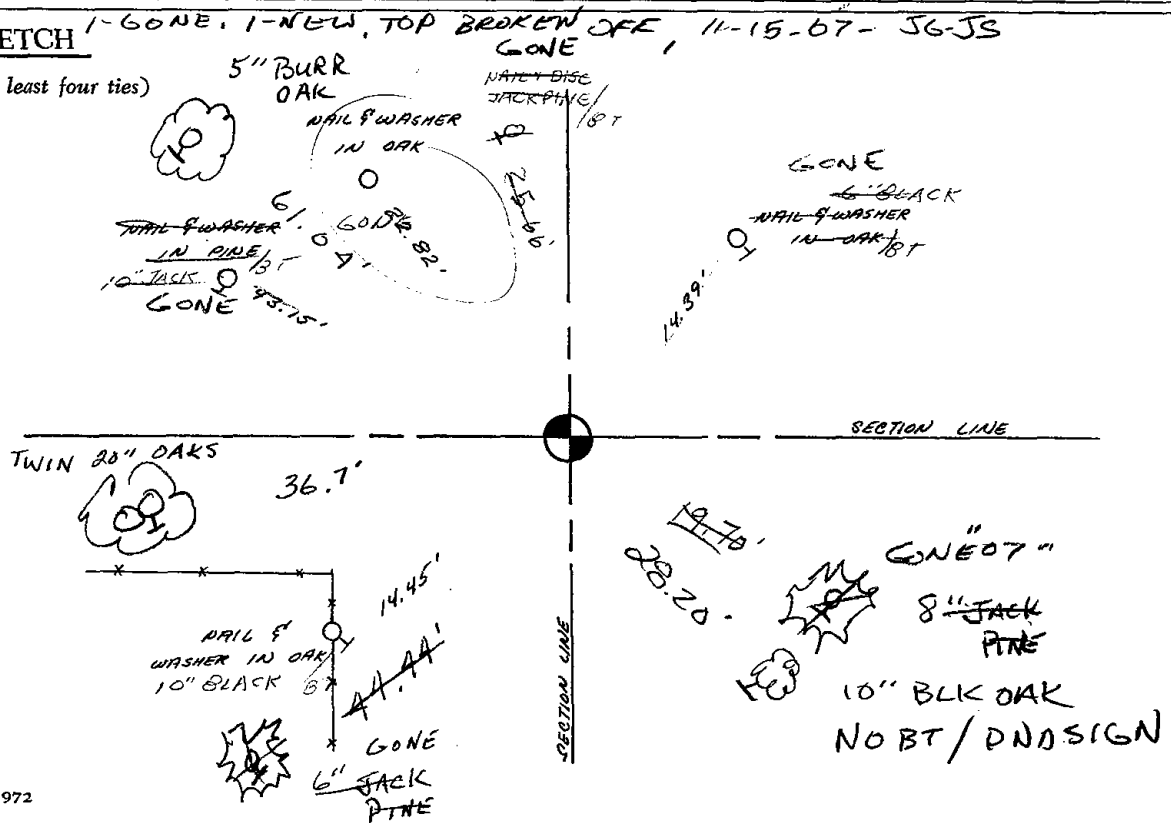 1-GONE. 1-NEW, TOP BROKEN OFF, 11-15-07- JG-JS
ETCH
least four ties)
5" BURR
OAK
NAIL & WASHER
IN OAK
GONE
NAIL & DISC
JACKPINE/
BT
25.66'
GONE
6" BLACK
NAIL & WASHER
IN OAK/BT
14.39'
NAIL & WASHER
IN PINE/BT
10" JACK
GONE
43.15'
GONE
82'
SECTION LINE
TWIN 20" OAKS
36.7'
14.45'
NAIL &
WASHER IN OAK
10" BLACK BT
44.44'
GONE
6" JACK
PINE
SECTION LINE
19.70'
28.20
GONE "07"
8" JACK
PINE
10" BLK OAK
NO BT/DNDSIGN
972